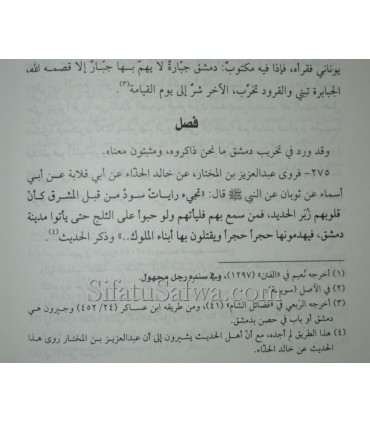 يوناني فقرأه، فإذا فيه مكتوبٌ: دمشق جبّارةٌ لا يهمّ بـها جبّارٌ إلا قصمه الله،
الجبابرة تبني والقرود تخرّب، الآخر شرٌّ إلى يوم القيامة(٣).
فصل
وقد ورد في تخريب دمشق ما نحن ذاكروه، ومثبتون معناه.
٢٧٥- فروى عبدالعزيز بن المختار، عن خالد الحذّاء عن أبي قلابة عن أبي
أسماء عن ثوبان عن النبي ﷺ قال: «تجيء رايات سودٌ من قبل المشرق كأنّ
قلوبهم زُبَر الحديد، فمن سمع بهم فليأتهم ولو حبواً على الثلج حتى يأتوا مدينة
دمشق، فيهدمونها حجراً حجراً ويقتلون بها أبناء الملوك..» وذكر الحديث(٤).
(١) أخرجه نُعيم في «الفتن» (١٢٩٧)، وفي سنده رجل مجهول.
(٢) في الأصل (سويـة).
SifatuSafwa.com
(٣) أخرجه الرَّبعي في «فضائل الشام» (٤١)، ومن طريقه ابن عساكر (٢٤/ ٤٥٢) وجيرون هي
دمشق أو باب في حصن بدمشق.
(٤) هذا الطريق لم أجده، مع أنّ أهل الحديث يشيرون إلى أن عبدالعزيز بن المختار روى هذا
الحديث عن خالد الحذّاء.